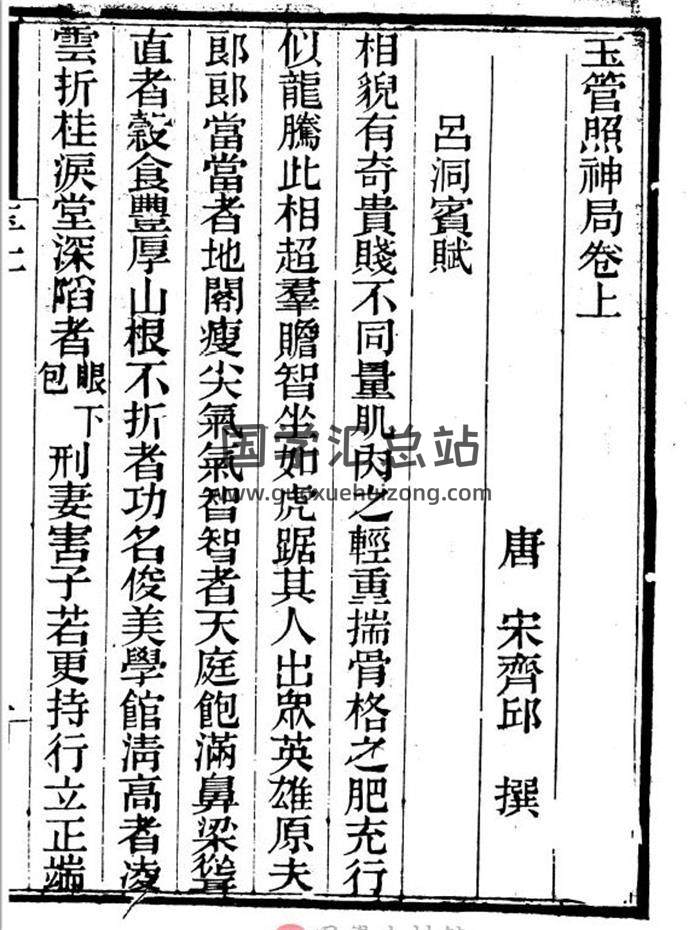 玉管照神局卷上
唐 宋齊邱 撰
呂洞賓賦
相貌有奇貴賤不同量肌肉之輕重揣骨格之肥充行
似龍騰此相超羣贍智坐如虎踞其人出衆英雄原夫
郎郎當當者地閣瘦尖氣氣智智者天庭飽滿鼻梁聳
直者穀食豐厚山根不折者功名俊美學館清高者凌
雲折桂淚堂深陷者眼下包刑妻害子若更持行立正端
国学汇总站
www.guoxuehuizong.com